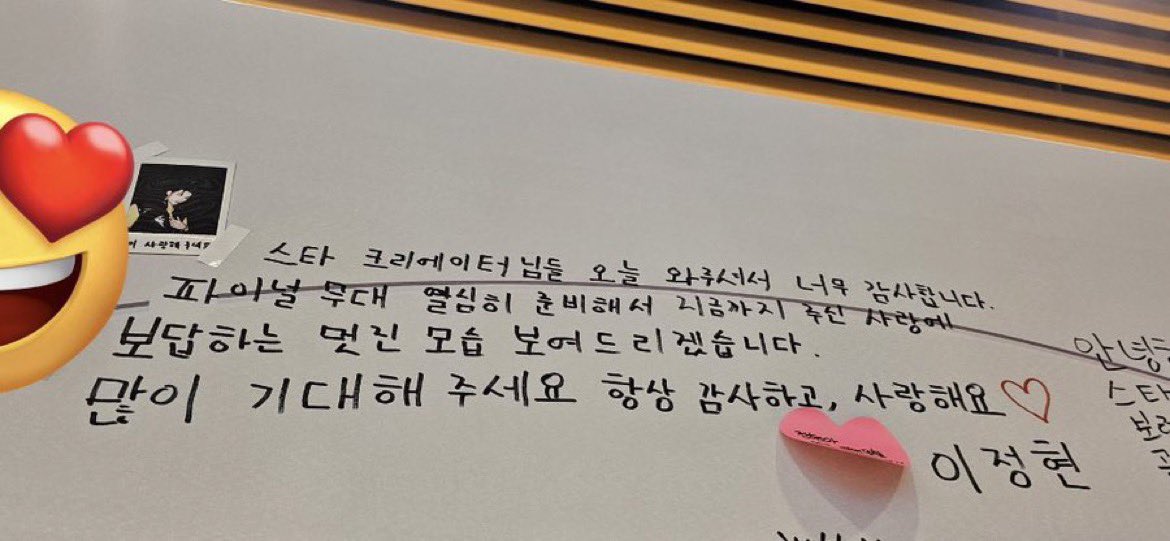 사랑해주세요
스타 크리에이터님들 오늘 와주셔서 너무 감사합니다.
파이널 무대 열심히 준비해서 지금까지 주신 사랑에
보답하는 멋진 모습 보여드리겠습니다.
많이 기대해 주세요 항상 감사하고, 사랑해요♡
이정현
안녕
스타